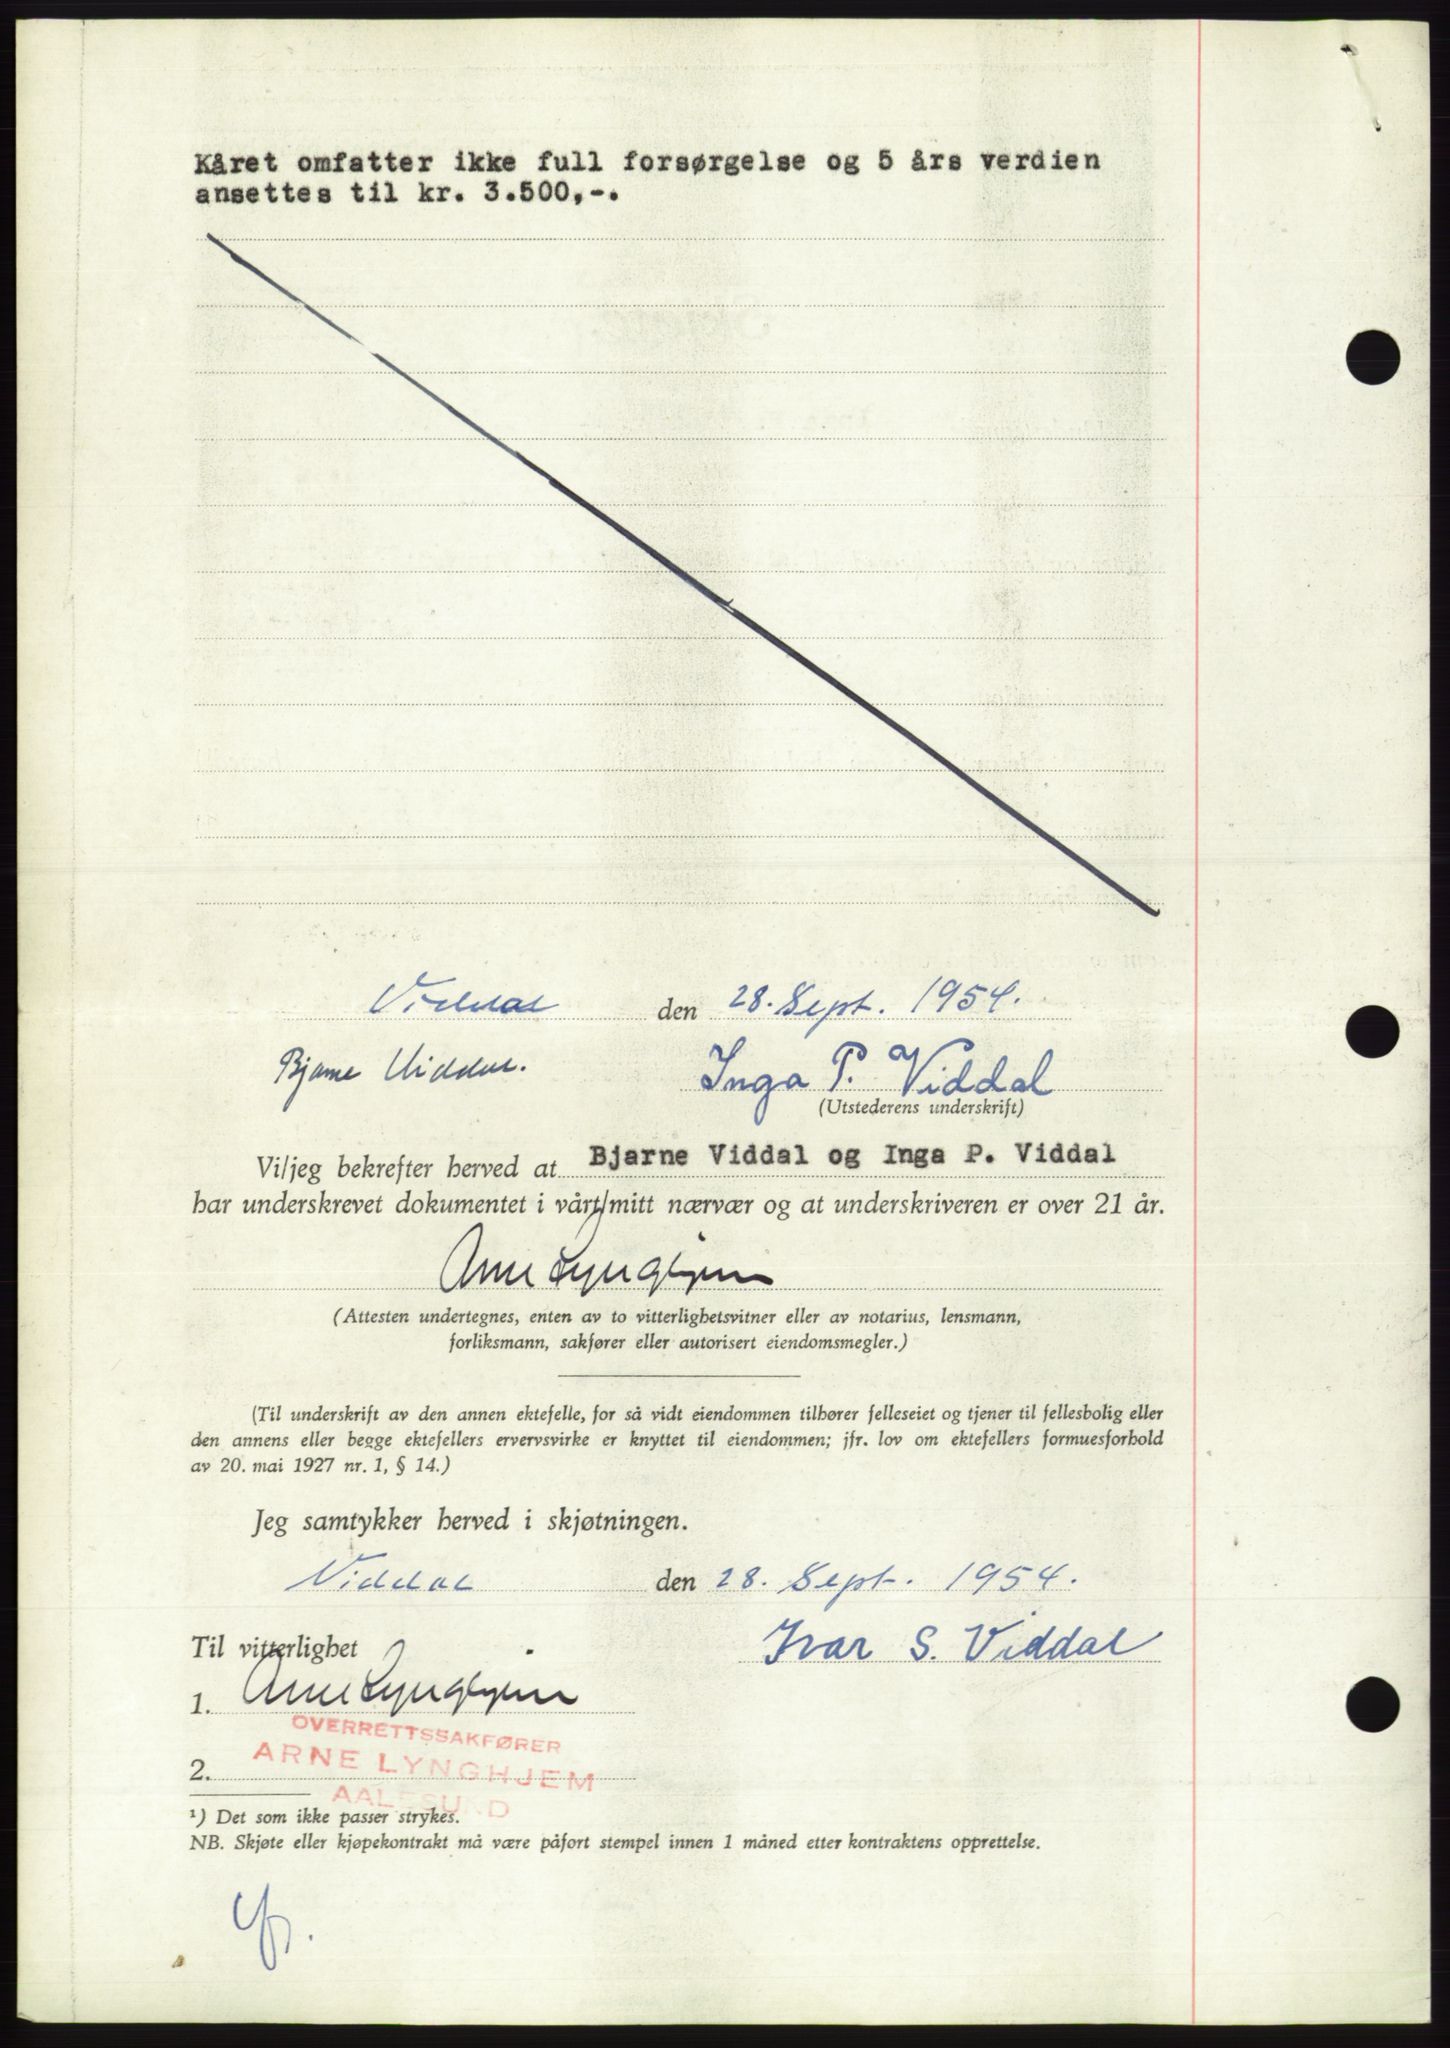 Kåret omfatter ikke full forsørgelse og 5 års verdien
ansettes til kr. 3.500,-.
Viddal den 28. Sept. 1954.
Bjarne Viddal. Inga P. Viddal
(Utstederens underskrift)
Vi/jeg bekrefter herved at Bjarne Viddal og Inga P. Viddal
har underskrevet dokumentet i vårt/mitt nærvær og at underskriveren er over 21 år.
Arne Lynghjem
(Attesten undertegnes, enten av to vitterlighetsvitner eller av notarius, lensmann,
forliksmann, sakfører eller autorisert eiendomsmegler.)
(Til underskrift av den annen ektefelle, for så vidt eiendommen tilhører felleseiet og tjener til fellesbolig eller
den annens eller begge ektefellers ervervsvirke er knyttet til eiendommen; jfr. lov om ektefellers formuesforhold
av 20. mai 1927 nr. 1, § 14.)
Jeg samtykker herved i skjøtningen.
Viddal den 28. Sept. 1954.
Til vitterlighet Ivar S. Viddal
1. Arne Lynghjem
OVERRETTSSAKFØRER
2. ARNE LYNGHJEM
AALESUND
¹) Det som ikke passer strykes.
NB. Skjøte eller kjøpekontrakt må være påført stempel innen 1 måned etter kontraktens opprettelse.